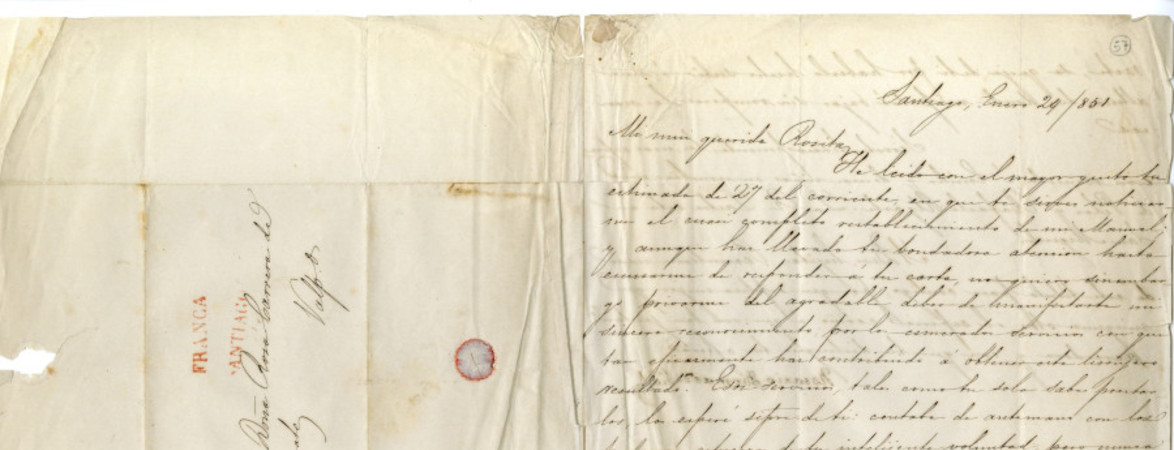 57
Santiago, Enero 29/851
Mi mui querida Rosita,
He leido con el mayor gusto tu
estimada de 27 del corriente, en que te sirves noticiar
me el casi completo restablecimiento de mi Manuel;
y aunque has llevado tu bondadosa atencion hasta
escusarme de responder á tu carta, no quiero sinembar
go privarme del agradable deber de manifestarte mi
sincero reconocimiento por los esmerados servicios con que
tan eficazmente has contribuido á obtener este lisonjero
resultado. Esos servicios, tales como tu sola sabes prestar
los los esperé de ti: contaba de antemano con los
de tu inteligente voluntad, pero nunca
FRANCA
SANTIAGO
Doña Rosa Carrera de
Valp.o